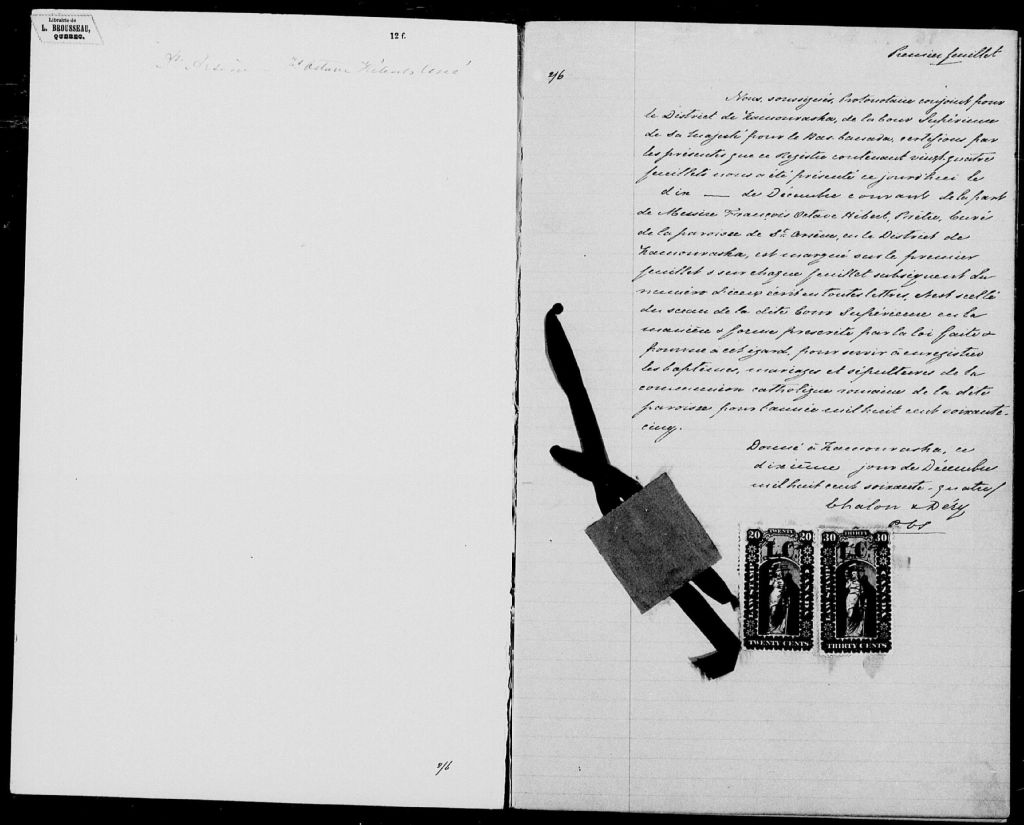 Librairie de
L. BROUSSEAU,
QUEBEC.
12 f.
St. Arsène Frs Octave Hébert Curé
2/6
2/6
Premier feuillet
Nous, soussignés, Protonotaire conjoint pour
le District de Kamouraska, de la Cour Supérieure
de Sa Majesté pour le Bas-Canada, certifions par
les présentes que ce Registre contenant vingt quatre
feuillets nous a été présenté ce jourd'hui le
dix — de Décembre courant de la part
de Messire François Octave Hébert, Prêtre, Curé
de la paroisse de St. Arsène, en le District de
Kamouraska, est marqué sur le premier
feuillet & sur chaque feuillet subséquent du
numéro d'iceux écrit en toutes lettres, & est scellé
du sceau de la dite Cour Supérieure en la
manière & forme prescrite par la loi faite &
pourvue à cet égard, pour servir à enregistrer
les baptêmes, mariages et sépultures de la
communion catholique romaine de la dite
paroisse pour l'année mil huit cent soixante-
cinq.
Donné à Kamouraska, ce
dixième jour de Décembre
mil huit cent soixante-quatre/
Chalon & Déry
P.C.S.
20 TWENTY 20
LC
LAW STAMP
CANADA
TWENTY CENTS
30 THIRTY 30
LC
LAW STAMP
CANADA
THIRTY CENTS